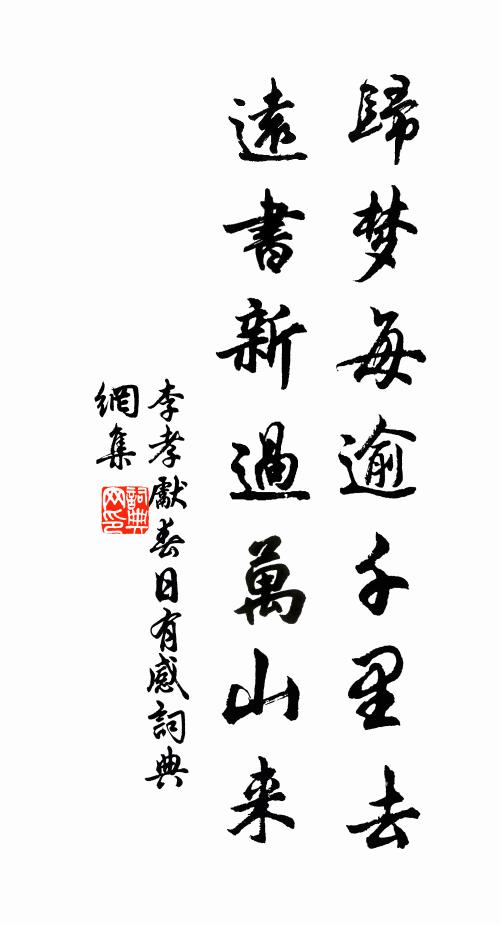 歸梦每逾千里去
遠書新過萬山来
李孝獻春日有感詞典
網集
詞典
网印